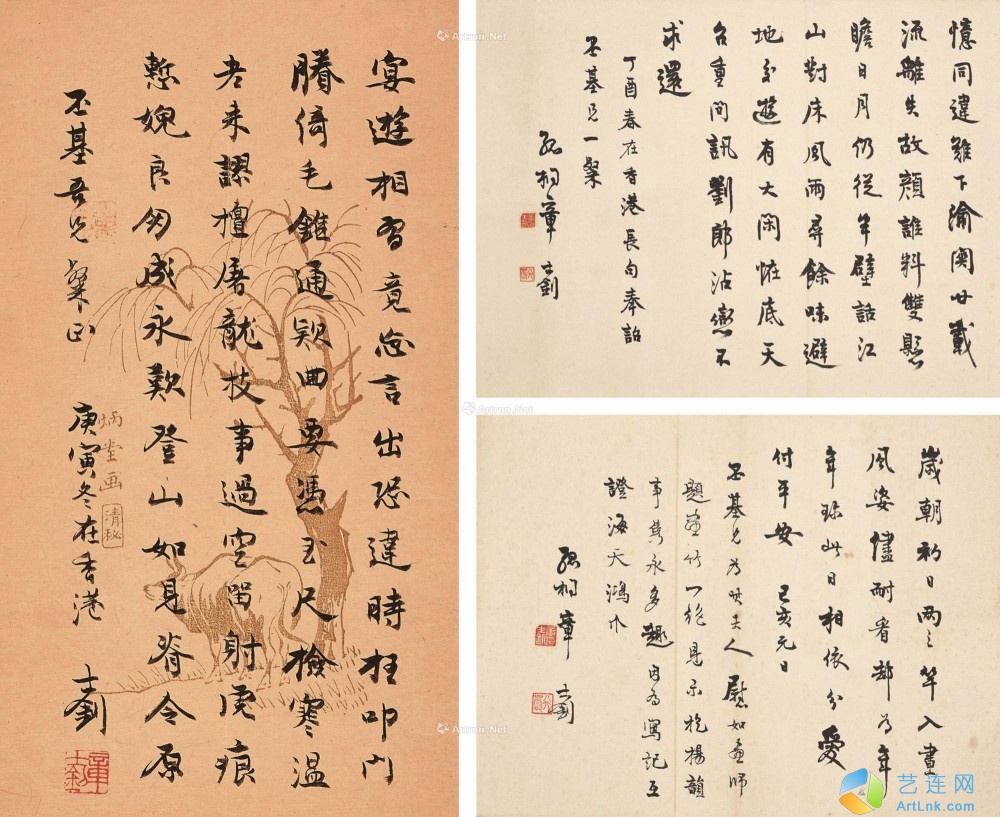 宴遊相習竟忘言出恐違時枉叩門
賸倚毛錐通款曲要憑玉尺檢寒溫
老來謬檀屠龍技事過空留射虎痕
慙媿良朋成永歎登山如見脊令原
丕基吾兄粲正 庚寅冬在香港 士釗
炳堂画
清秘
憶同違難下渝關廿載
流離失故顏誰料雙懸
瞻日月仍從半壁話江
山對床風雨尋餘味避
地交遊有大閑恠底天
台重問訊劉郎沾戀不
求還
丁酉春在香港長句奉詒
丕基兄一粲
孤桐章士釗
歲朝初日兩三竿入畫
風姿儘耐看都為年
年珎此日相依分愛
付平安 己亥元日
丕基兄為夫人慰如畫師
題畫竹一絕見示揚韻
事雋永多趣因為寫記互
證海天鴻爪
孤桐章士釗
Artron.Net
Artron.Net
Artron.Net
Artron.Net
艺连网
ArtLnk.com